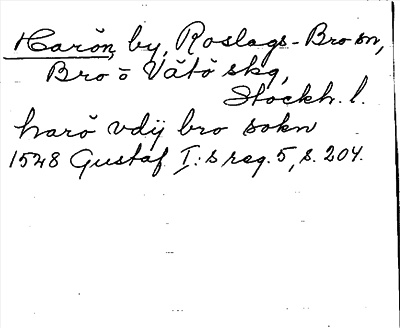 Harön, by, Roslags-Bro sn,
Bro o Vätö skg,
Stockh. l.
harö vdij bro sokn
1548 Gustaf I:s reg. 5, s. 204.